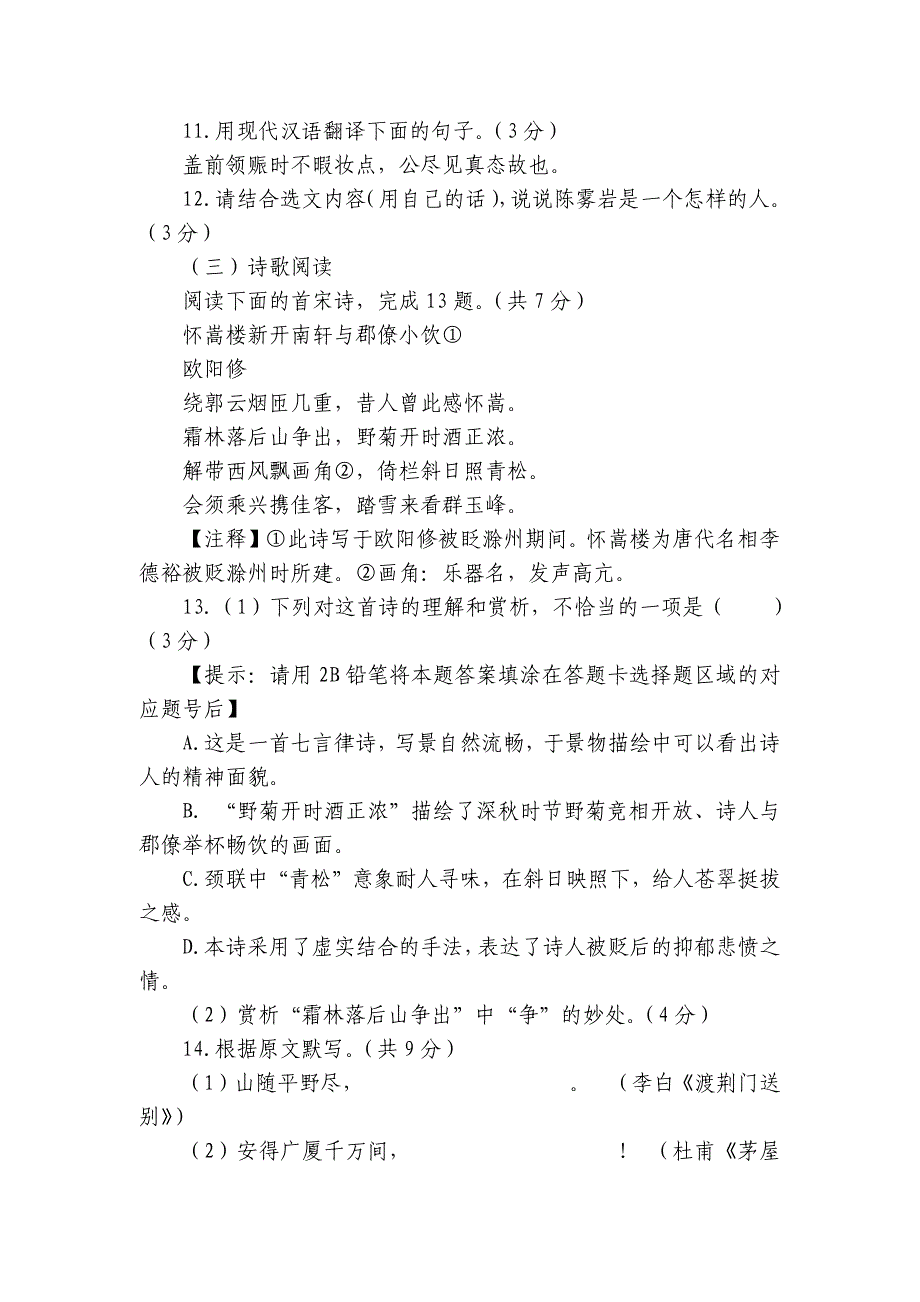 11.用现代汉语翻译下面的句子。(3分)
盖前领赈时不暇妆点，公尽见真态故也。
12.请结合选文内容(用自己的话),说说陈雾岩是一个怎样的人。
(3分)
（三）诗歌阅读
阅读下面的首宋诗，完成13题。(共7分)
怀嵩楼新开南轩与郡僚小饮①
欧阳修
绕郭云烟匝几重，昔人曾此感怀嵩。
霜林落后山争出，野菊开时酒正浓。
解带西风飘画角②，倚栏斜日照青松。
会须乘兴携佳客，踏雪来看群玉峰。
【注释】①此诗写于欧阳修被贬滁州期间。怀嵩楼为唐代名相李
德裕被贬滁州时所建。②画角：乐器名，发声高亢。
13.（1）下列对这首诗的理解和赏析，不恰当的一项是（　　）
(3分)
【提示：请用2B铅笔将本题答案填涂在答题卡选择题区域的对
应题号后】
A.这是一首七言律诗，写景自然流畅，于景物描绘中可以看出诗
人的精神面貌。
B. “野菊开时酒正浓”描绘了深秋时节野菊竞相开放、诗人与
郡僚举杯畅饮的画面。
C.颈联中“青松”意象耐人寻味，在斜日映照下，给人苍翠挺拔
之感。
D.本诗采用了虚实结合的手法,表达了诗人被贬后的抑郁悲愤之
情。
（2）赏析“霜林落后山争出”中“争”的妙处。(4分)
14.根据原文默写。(共9分)
（1）山随平野尽，　　　　　　　　　　。　（李白《渡荆门送
别》）
（2）安得广厦千万间，　　　　　　　　　　！　（杜甫《茅屋